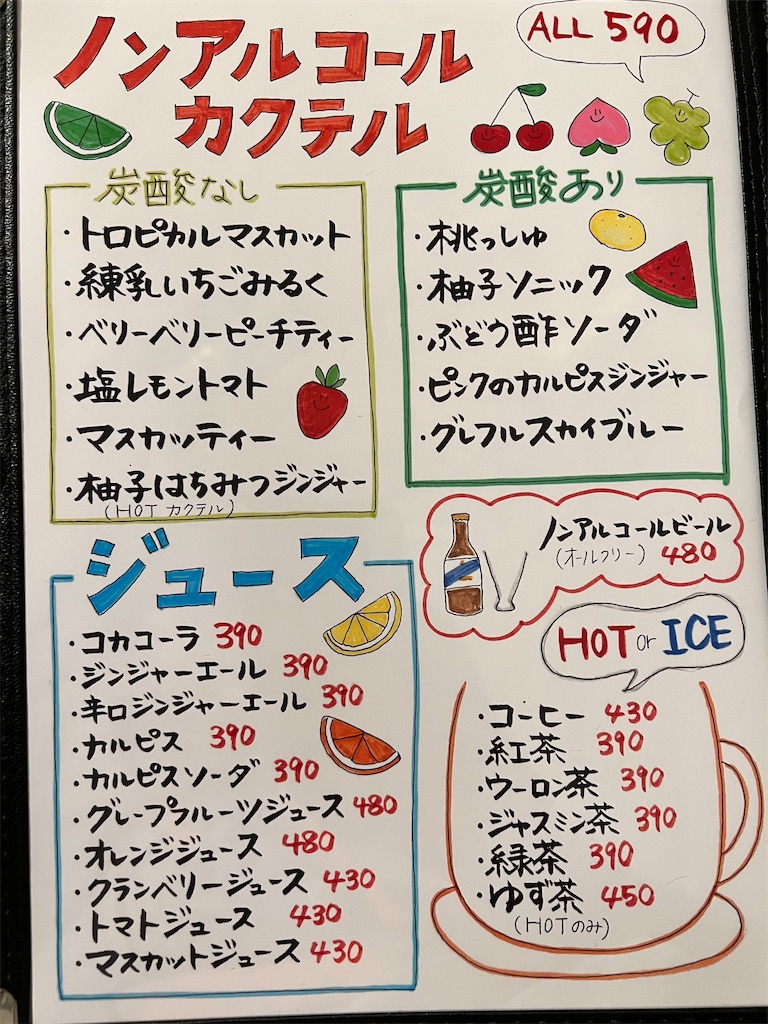 ノンアルコール
カクテル
ALL 590
炭酸なし
・トロピカルマスカット
・練乳いちごみるく
・ベリーベリーピーチティー
・塩レモントマト
・マスカッティー
・柚子はちみつジンジャー
(HOT カクテル)
炭酸あり
・桃っしゅ
・柚子ソニック
・ぶどう酢ソーダ
・ピンクのカルピスジンジャー
・グレフルスカイブルー
ノンアルコールビール
(オールフリー) 480
ジュース
・コカコーラ 390
・ジンジャーエール 390
・辛口ジンジャーエール 390
・カルピス 390
・カルピスソーダ 390
・グレープフルーツジュース 480
・オレンジジュース 480
・クランベリージュース 430
・トマトジュース 430
・マスカットジュース 430
HOT or ICE
・コーヒー 430
・紅茶 390
・ウーロン茶 390
・ジャスミン茶 390
・緑茶 390
・ゆず茶 450
(HOTのみ)